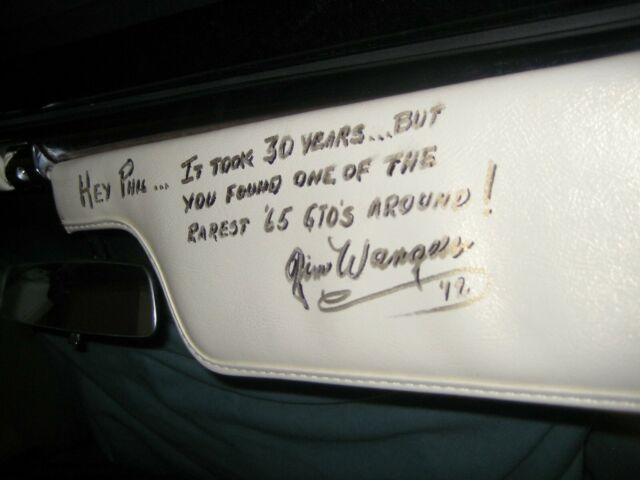 HEY PHIL... IT TOOK 30 YEARS...BUT
YOU FOUND ONE OF THE
RAREST '65 GTO'S AROUND!
Jim Wangers